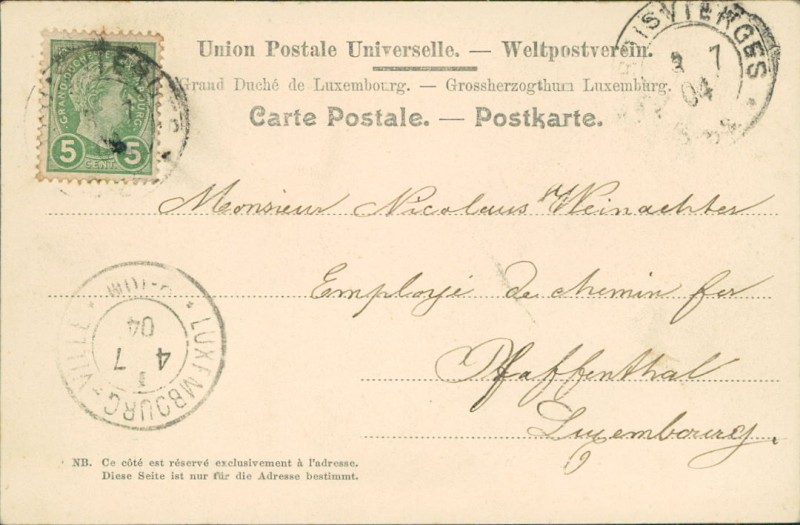 Union Postale Universelle. — Weltpostverein.
Grand Duché de Luxembourg. — Grossherzogthum Luxemburg.
Carte Postale. — Postkarte.
GRAND-DUCHÉ
5 5
CENT.
VIERGES
3 7
04
Monsieur Nicolaus Weinachter
Employé de chemin fer
Pfaffenthal
Luxembourg.
LUXEMBOURG-VILLE
4 7
04
NB. Ce côté est réservé exclusivement à l'adresse.
Diese Seite ist nur für die Adresse bestimmt.